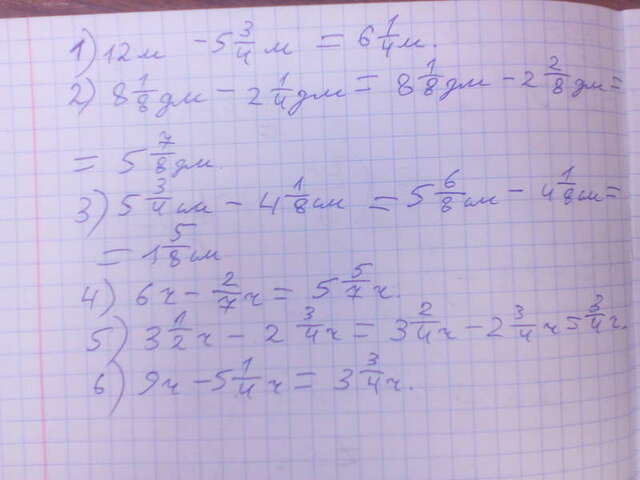 1) 12м - 5 3/4 м = 6 1/4 м.
2) 8 1/8 дм - 2 1/4 дм = 8 1/8 дм - 2 2/8 дм =
= 5 7/8 дм.
3) 5 3/4 см - 4 1/8 см = 5 6/8 см - 4 1/8 см =
= 1 5/8 см
4) 6ч - 2/7 ч = 5 5/7 ч.
5) 3 1/2 ч - 2 3/4 ч = 3 2/4 ч - 2 3/4 ч 5 3/4 ч.
6) 9ч - 5 1/4 ч = 3 3/4 ч.